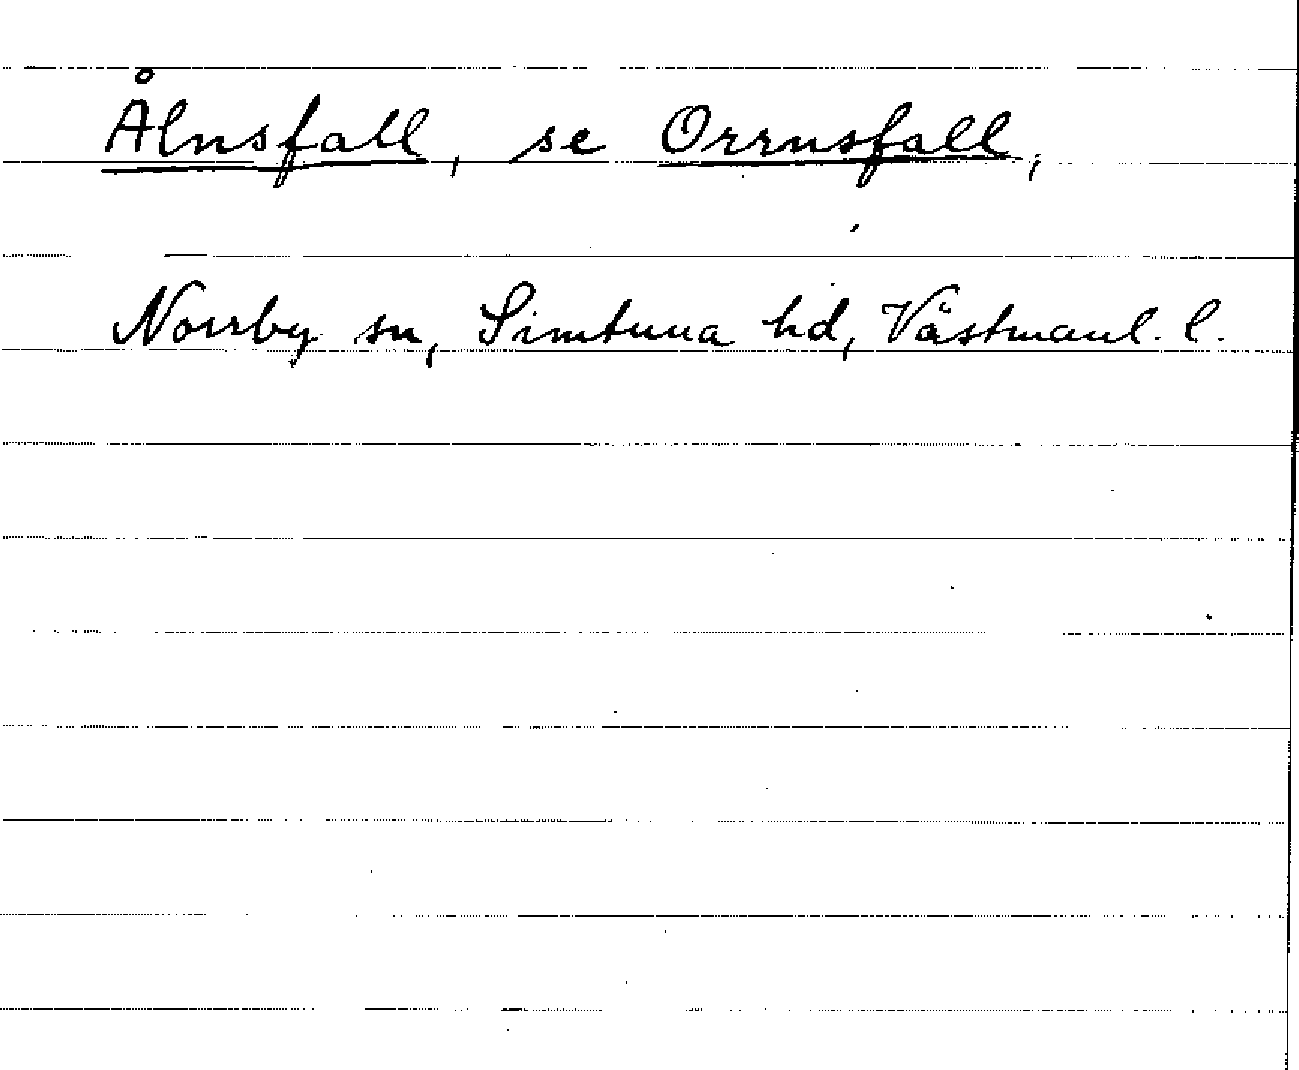 Ålnsfall, se Orrnsfall,
Norrby sn, Simtuna hd, Västmanl. l.